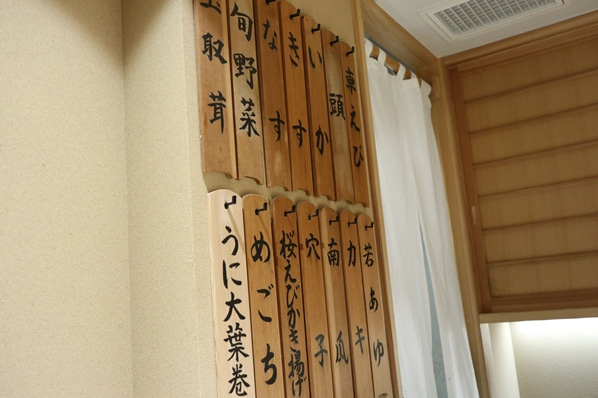 車えび
頭
いか
きす
なす
旬野菜
取茸
若あゆ
カキ
南瓜
穴子
桜えびかき揚げ
めごち
うに大葉巻